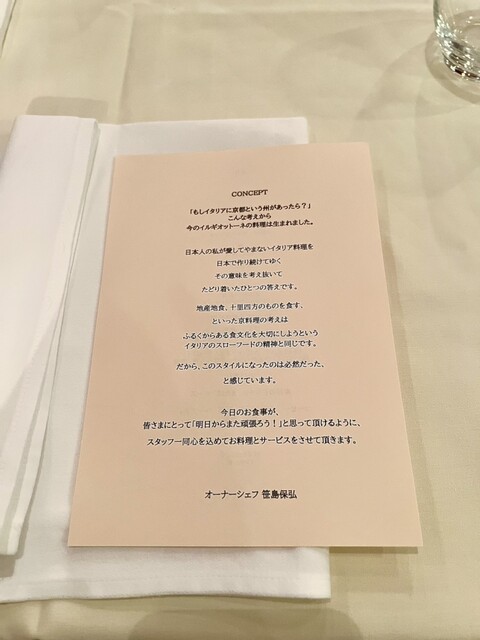 CONCEPT
「もしイタリアに京都という州があったら？」
こんな考えから
今のイルギオットーネの料理は生まれました。
日本人の私が愛してやまないイタリア料理を
日本で作り続けてゆく
その意味を考え抜いて
たどり着いたひとつの答えです。
地産地食、十里四方のものを食す、
といった京料理の考えは
ふるくからある食文化を大切にしようという
イタリアのスローフードの精神と同じです。
だから、このスタイルになったのは必然だった、
と感じています。
今日のお食事が、
皆さまにとって「明日からまた頑張ろう！」と思って頂けるように、
スタッフ一同心を込めてお料理とサービスをさせて頂きます。
オーナーシェフ 笹島保弘